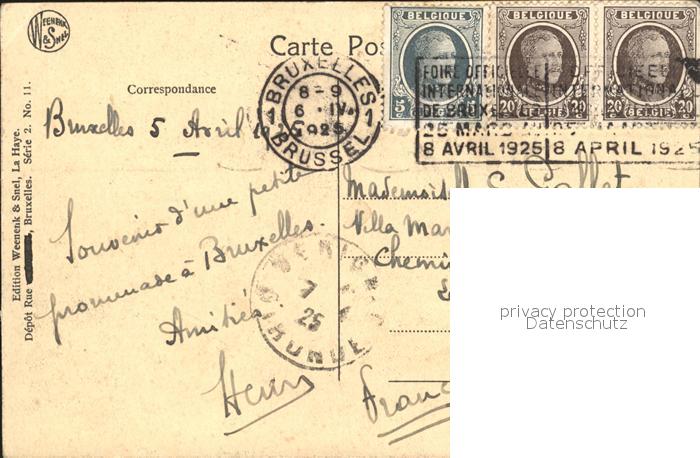 WEENENK & SNEL
Carte Pos
BELGIQUE BELGIQUE BELGIQUE
5 BELGIË 20 BELGIË 20 BELGIË 20
BRUXELLES
1 8-9 1
6 IV
1925
BRUSSEL
FOIRE OFFICIELLE
INTERNATIONALE INTERNATIONALE
DE BRUXELLES
25 MARS
8 AVRIL 1925 8 APRIL 1925
Correspondance
Bruxelles 5 Avril
Souvenir d'une petite
promenade à Bruxelles.
Amitiés
Henri
Mademoiselle S.
Villa Mar
Chemi
Franc
GIRONDE
7
25
Edition Weenenk & Snel, La Haye.
Dépôt Rue , Bruxelles. Série 2. No. 11.
privacy protection
Datenschutz